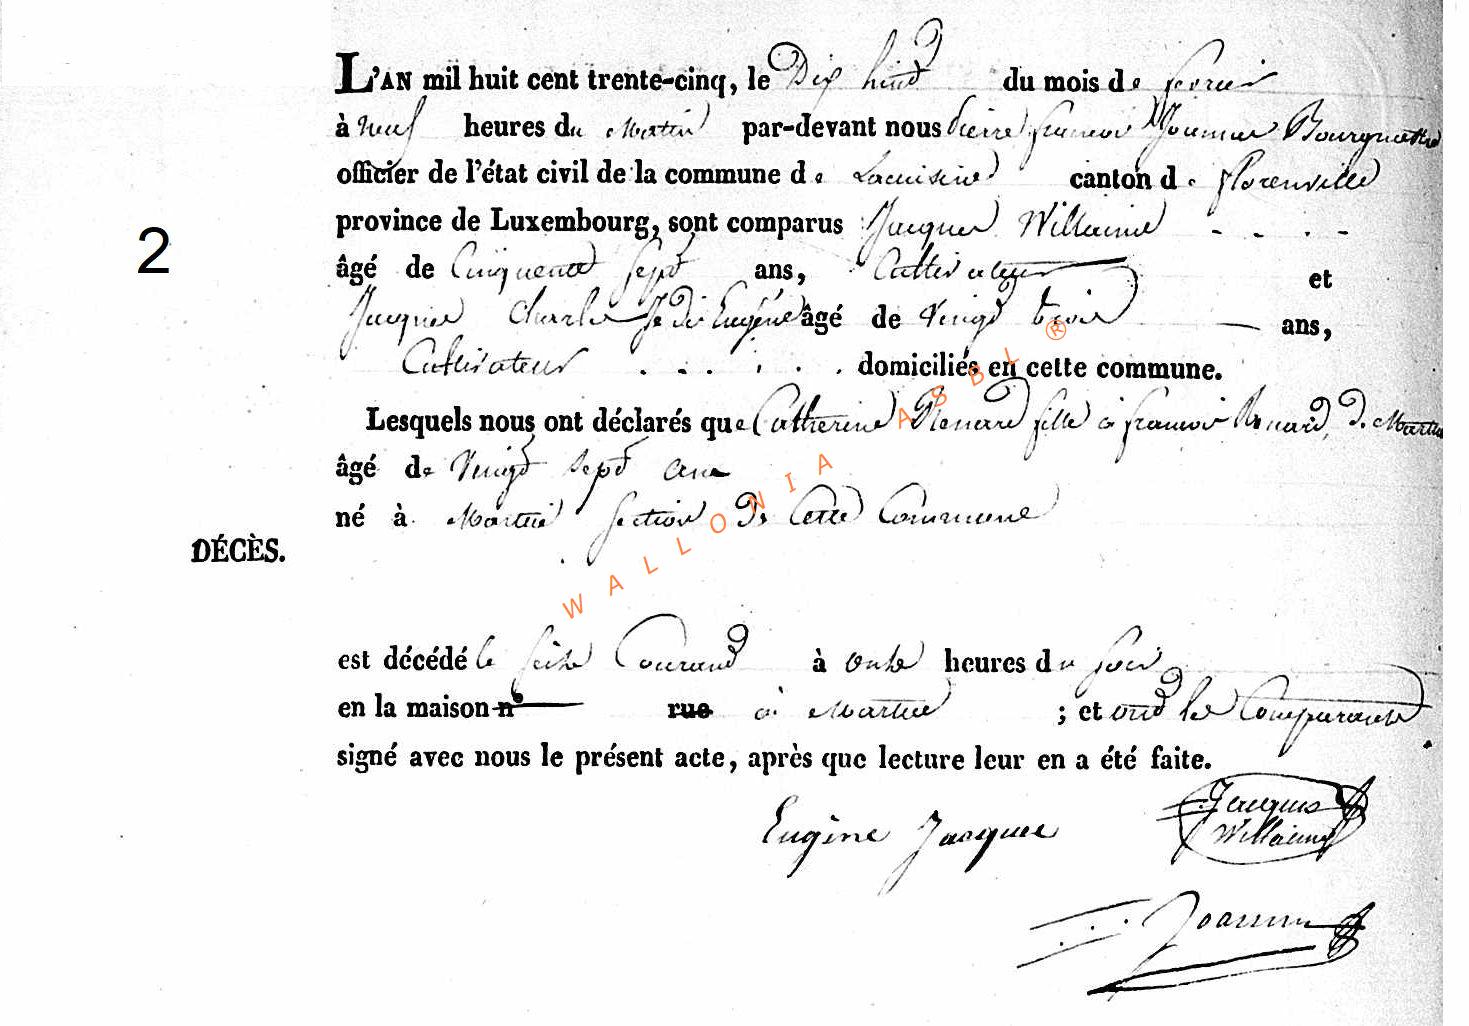 L'AN mil huit cent trente-cinq, le Dix huit du mois de fevrier
à neuf heures du Matin par-devant nous Pierre francois Joannes Bourguemtre
officier de l'état civil de la commune de Lacuisine canton de florenville
province de Luxembourg, sont comparus Jacques Willaime
2
âgé de Cinquente sept ans, Cultivateur et
Jacques Charles dit Eugéne âgé de Vingt trois ans,
Cultivateur domiciliés en cette commune.
Lesquels nous ont déclarés que Catherine Renard fille à francois Renard, de Martué
âgé de Vingt sept ans
né à Martué Section de Cette Commune
DÉCÈS.
est décédé le seize Courant à onze heures du soir
en la maison n° rue à Martué ; et ont les Comparants
signé avec nous le présent acte, après que lecture leur en a été faite.
Eugène Jacques
Jacques
Willaime
Joannes
WALLONIA ASBL ®